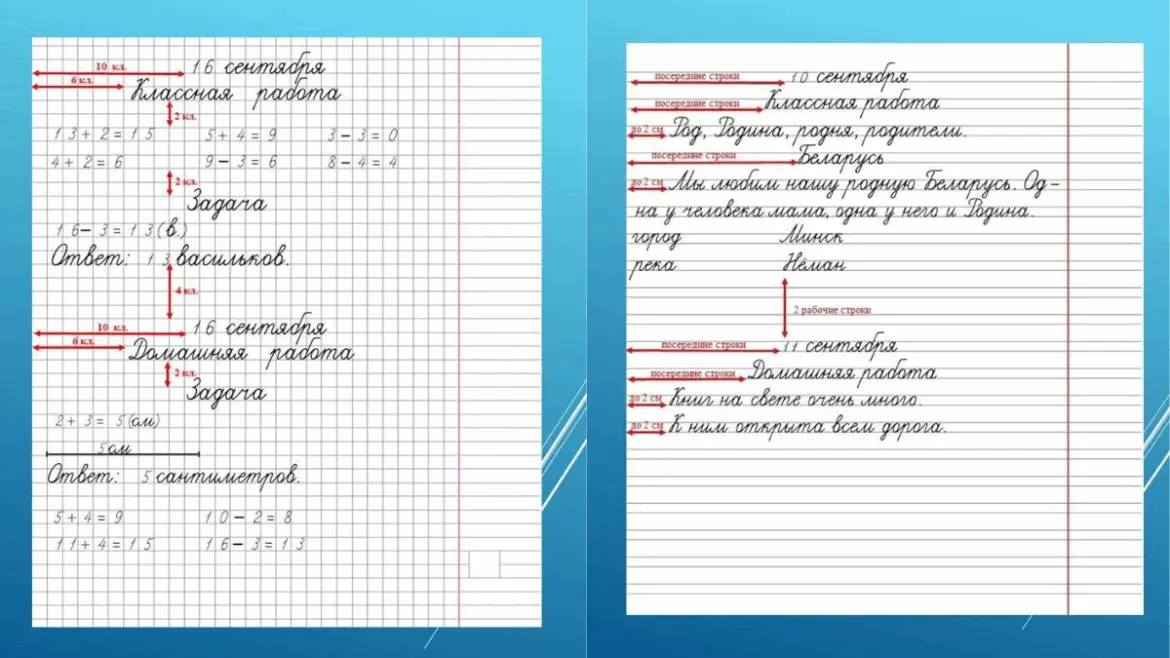 10 кл. 16 сентября
6 кл. Классная работа
2 кл.
13+2=15 5+4=9 3-3=0
4+2=6 9-3=6 8-4=4
2 кл.
Задача
16-3=13(в.)
Ответ: 13 васильков.
4 кл.
10 кл. 16 сентября
6 кл. Домашняя работа
2 кл.
Задача
2+3=5(см)
5см
Ответ: 5 сантиметров.
5+4=9 10-2=8
11+4=15 16-3=13
посередине строки 10 сентября
посередине строки Классная работа
до 2 см Род, Родина, родня, родители.
посередине строки Беларусь
до 2 см Мы любим нашу родную Беларусь. Од-
на у человека мама, одна у него и Родина.
город Минск
река Нёман
2 рабочие строки
посередине строки 11 сентября
посередине строки Домашняя работа
до 2 см Книг на свете очень много.
до 2 см К ним открыта всем дорога.